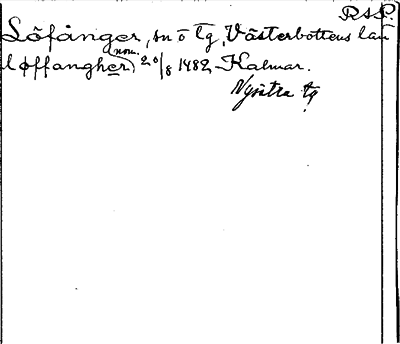 RAP.
Löfånger, sn o tg, Västerbottens län
løffangher nom. 20/8 1482 Kalmar.
Nysätra tg